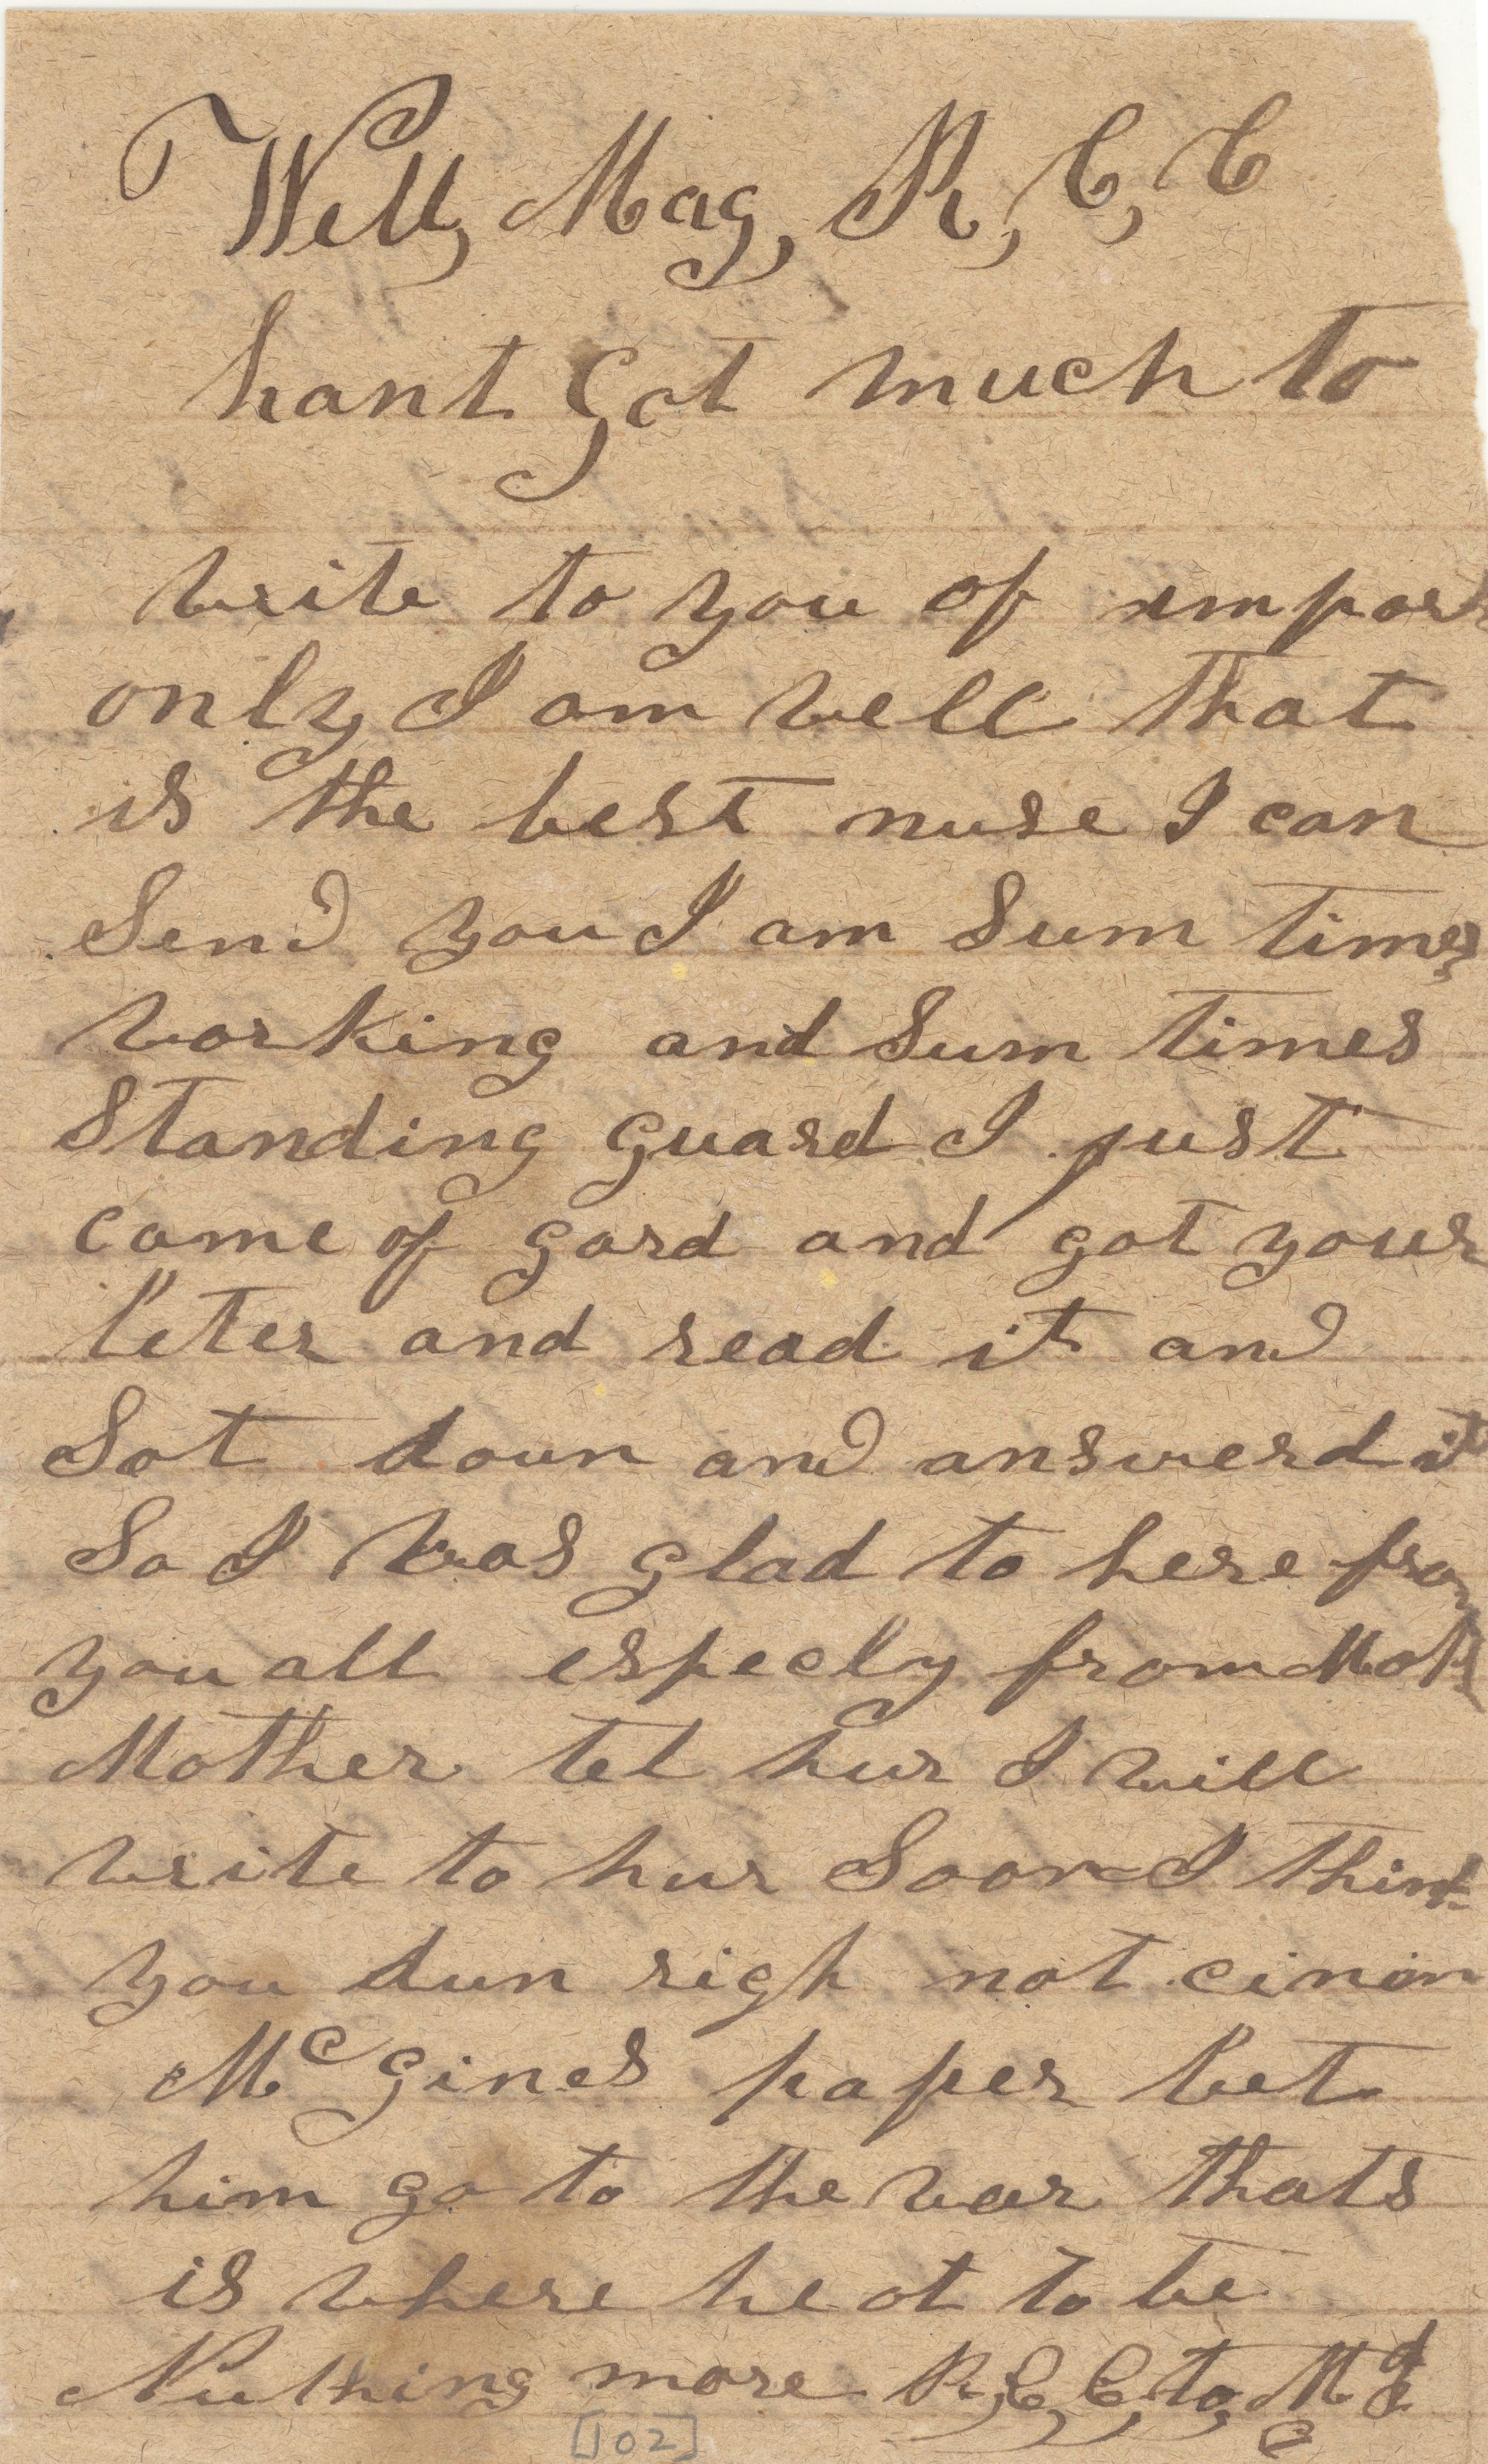 Well, Mag, R, C, C
hant got much to
write to you of impor
only I am well that
is the best nuse I can
Send you I am Sum times
working and Sum times
Standing guard I just
come of gard and got your
leter and read it and
Sot down and answerd it
So I was glad to here from
you all especly from Moth
Mother tel hur I will
write to hur Soon I think
you dun righ not cinin
Mc gines paper let
him go to the war thats
is where he ot to be
Nuthing more R, C, C, to, M
[102]